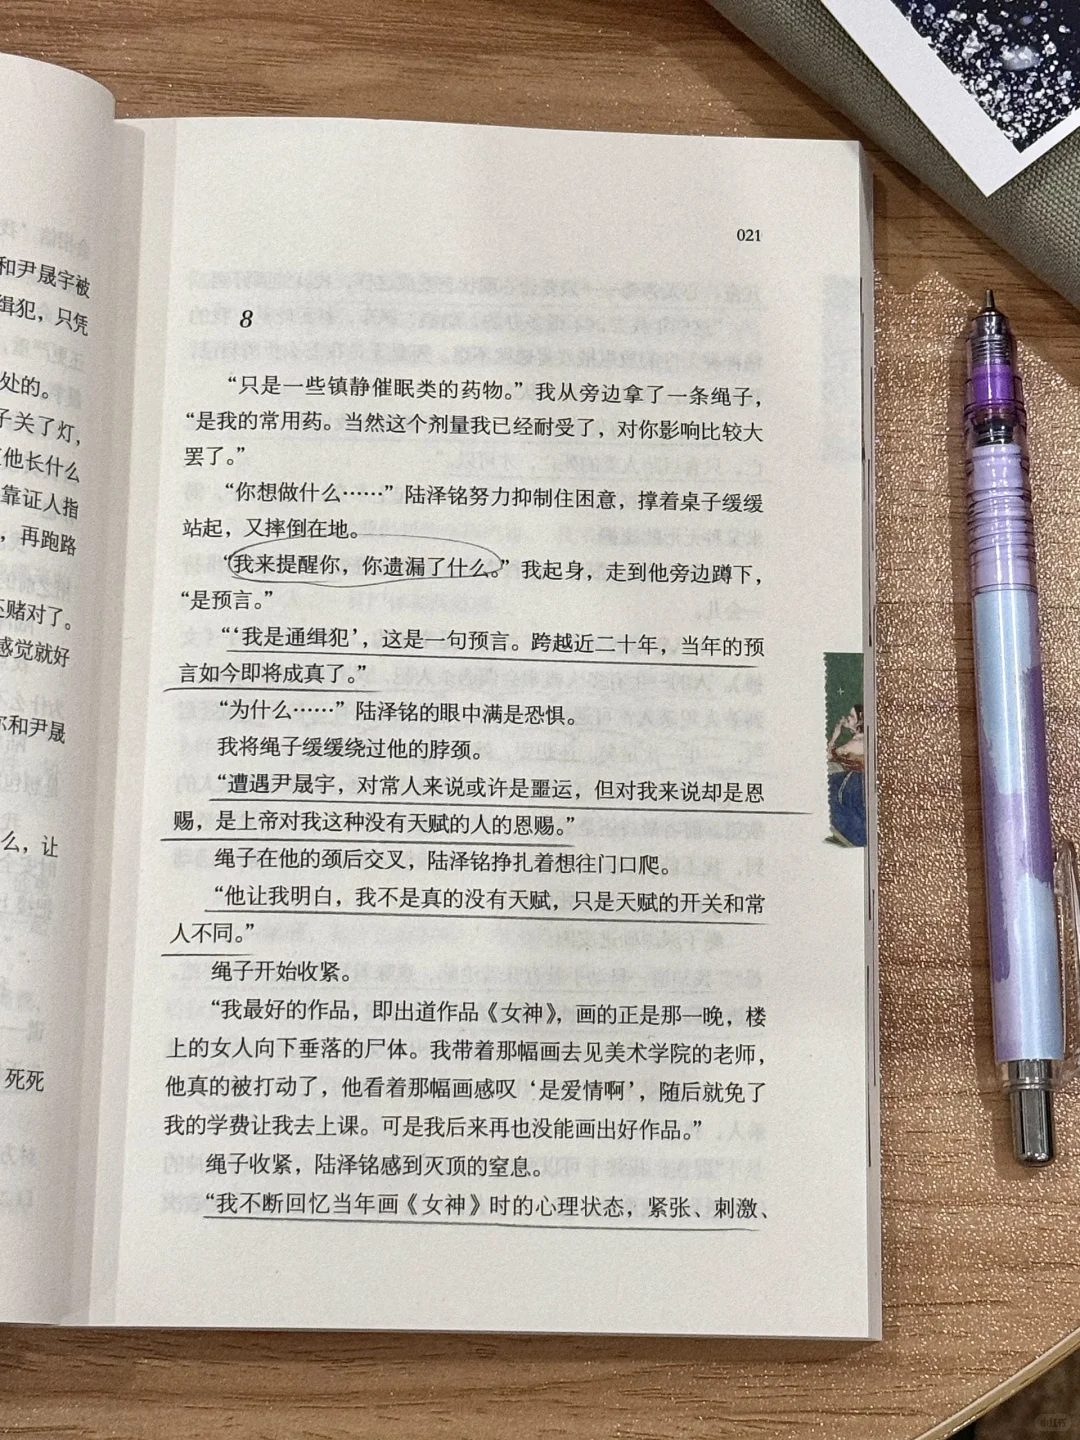 和尹晟宇被
缉犯，只凭
处的。
子关了灯，
他长什么
靠证人指
，再跑路
还赌对了。
感觉就好
你和尹晟
么，让
死死
021
8
“只是一些镇静催眠类的药物。”我从旁边拿了一条绳子，
“是我的常用药。当然这个剂量我已经耐受了，对你影响比较大
罢了。”
“你想做什么……”陆泽铭努力抑制住困意，撑着桌子缓缓
站起，又摔倒在地。
“我来提醒你，你遗漏了什么。”我起身，走到他旁边蹲下，
“是预言。”
“‘我是通缉犯’，这是一句预言。跨越近二十年，当年的预
言如今即将成真了。”
“为什么……”陆泽铭的眼中满是恐惧。
我将绳子缓缓绕过他的脖颈。
“遭遇尹晟宇，对常人来说或许是噩运，但对我来说却是恩
赐，是上帝对我这种没有天赋的人的恩赐。”
绳子在他的颈后交叉，陆泽铭挣扎着想往门口爬。
“他让我明白，我不是真的没有天赋，只是天赋的开关和常
人不同。”
绳子开始收紧。
“我最好的作品，即出道作品《女神》，画的正是那一晚，楼
上的女人向下垂落的尸体。我带着那幅画去见美术学院的老师，
他真的被打动了，他看着那幅画感叹‘是爱情啊’，随后就免了
我的学费让我去上课。可是我后来再也没能画出好作品。”
绳子收紧，陆泽铭感到灭顶的窒息。
“我不断回忆当年画《女神》时的心理状态，紧张、刺激、